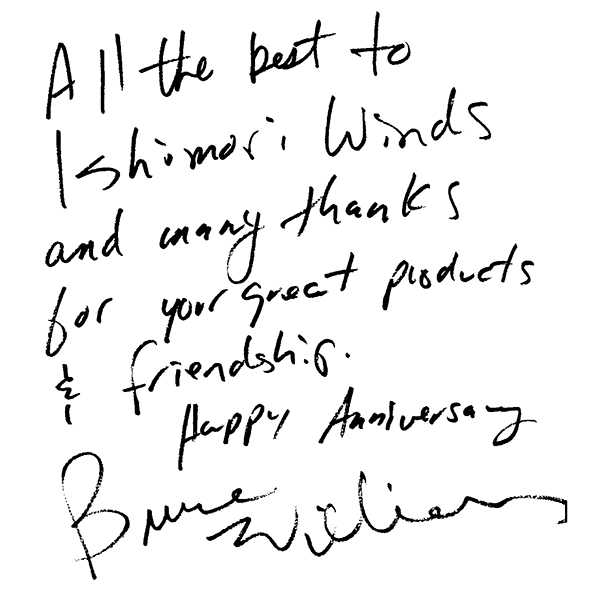 All the best to
Ishimori Winds
and many thanks
for your great products
& friendship.
Happy Anniversary
Bruce Williams